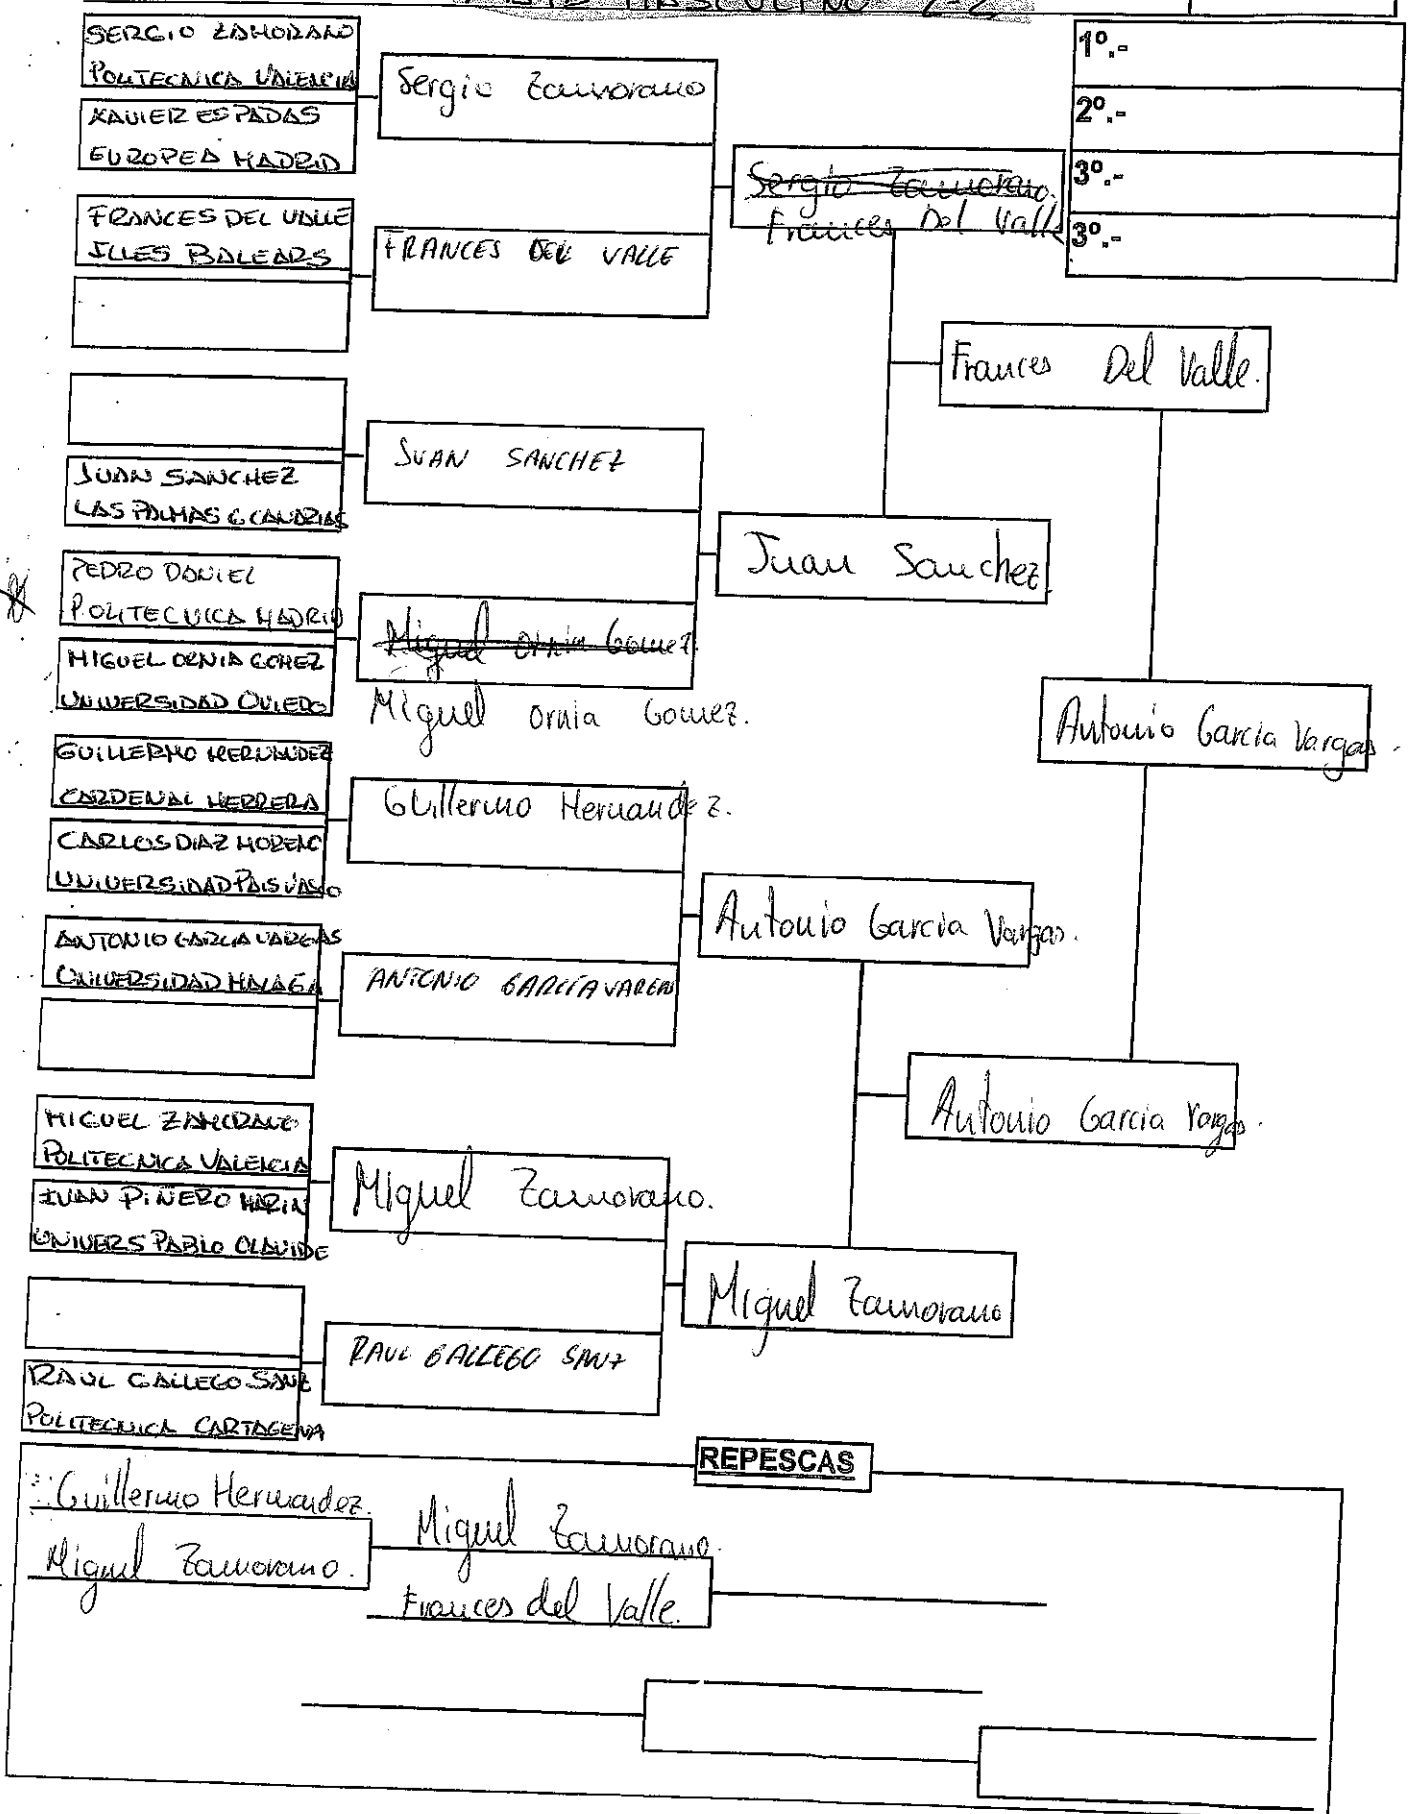 MASCULINO
SERGIO ZAMORANO
POLITECNICA VALENCIA
XAVIER ESPADAS
EUROPEA MADRID
FRANCES DEL VALLE
ILLES BALEARS
JUAN SANCHEZ
LAS PALMAS G CANARIAS
PEDRO DANIEL
POLITECNICA MADRID
MIGUEL ORNIA GOMEZ
UNIVERSIDAD OVIEDO
GUILLERMO HERNANDEZ
CARDENAL HERRERA
CARLOS DIAZ MORENO
UNIVERSIDAD PAIS VASCO
ANTONIO GARCIA VARGAS
UNIVERSIDAD MALAGA
MIGUEL ZAMORANO
POLITECNICA VALENCIA
IVAN PIÑERO MARIN
UNIVERS PABLO OLAVIDE
RAUL GALLEGO SANZ
POLITECNICA CARTAGENA
Sergio Zamorano
FRANCES DEL VALLE
JUAN SANCHEZ
Miguel Ornia Gomez.
Miguel Ornia Gomez.
Guillermo Hernandez.
ANTONIO GARCÍA VARGAS
Miguel Zamorano.
RAUL GALLEGO SANZ
Sergio Zamorano.
Frances Del Valle
Juan Sanchez.
Antonio Garcia Vargas.
Miguel Zamorano
Frances Del Valle.
Antonio Garcia Vargas.
Antonio Garcia Vargas.
1º.-
2º.-
3º.-
3º.-
REPESCAS
Guillermo Hernandez.
Miguel Zamorano.
Miguel Zamorano.
Frances del Valle.